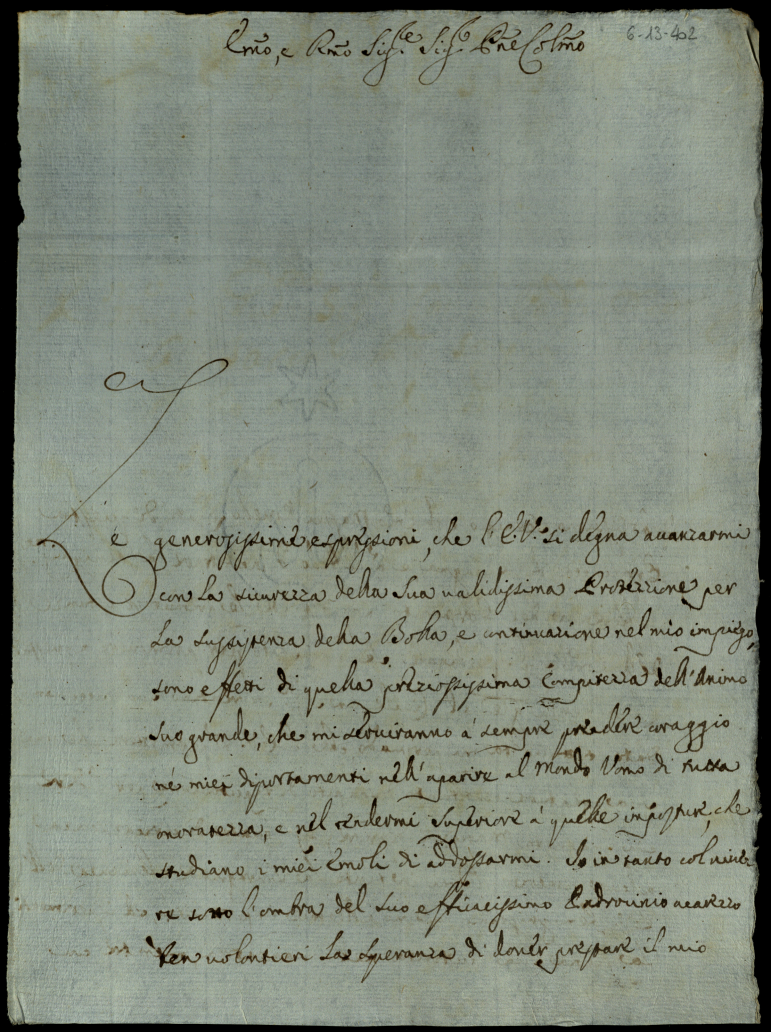 6-13-402
Emo, e Rmo Sig.re Sig.re Pne Colmo
Le generosissime espressioni, che l'E.V.ª si degna avanzarmi
con la sicurezza della Sua validissima Protezzione per
la sussistenza della Bolla, e continuazione nel mio impiego,
sono effetti di quella preziosissima Compitezza dell'Animo
suo grande, che mi serviranno à sempre prendere coraggio
ne miei diportamenti nell'aparire al Mondo Uomo di tutta
onoratezza, e nel rendermi Superiore à quelle imposture, che
studiano i miei Emoli di addossarmi. Io in tanto col vive-
re sotto l'ombra del suo efficacissimo Padrocinio acarezzo
ben volontieri la speranza di dover prestare il mio